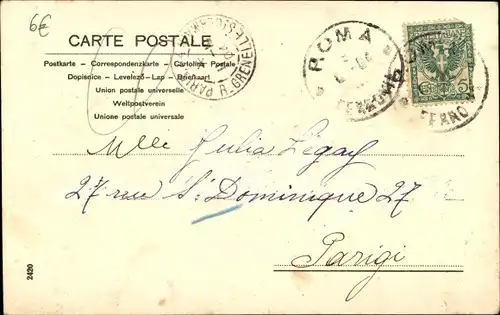 6€
CARTE POSTALE
Postkarte - Correspondenzkarte - Cartolina Postale
Dopisnice - Levelező-Lap - Briefkaart
Union postale universelle
Weltpostverein
Unione postale universale
PARIS
R. GRENELLE
ROMA
FERROVIA
FERROV
5
Mlle Julia Légay
27 rue St Dominique 27
Parigi
2420